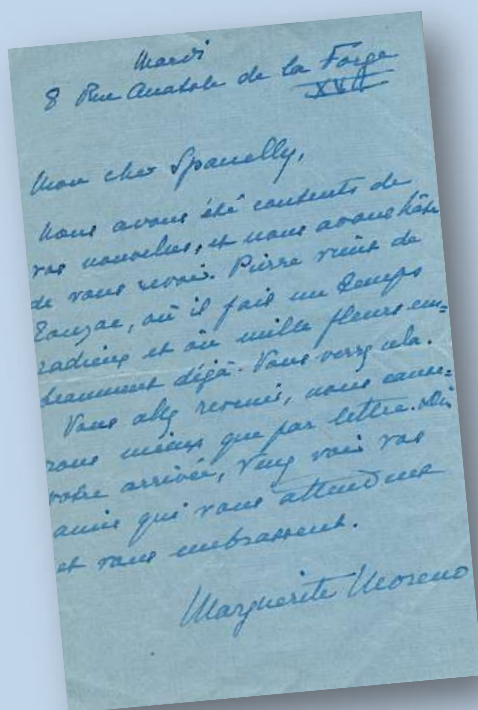 Mardi
8 Rue Anatole de la Forge
XVII
Mon cher Spanelly,
Nous avons été contents de
vos nouvelles, et nous avons hâte
de vous revoir. Pierre vient de
Touzac, où il fait un temps
radieux et où mille fleurs em=
beaument déjà. Vous verrez cela.
Vous allez revenir, nous cause=
rons mieux que par lettre. Dès
votre arrivée, venez voir vos
amis qui vous attendent
et vous embrassent.
Marguerite Moreno